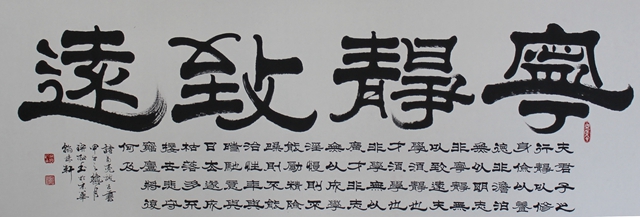 寧靜致遠
夫君子之
行靜以修
身儉以養
德非澹泊
無以明志
非寧靜無
以致遠夫
學須靜也
才須學也
非學無以
廣才非志
無以成學
淫慢則不
能勵精險
躁則不能
治性年與
時馳意與
日去遂成
枯落多不
接世悲守
窮廬將復
何及
諸葛亮誡子書